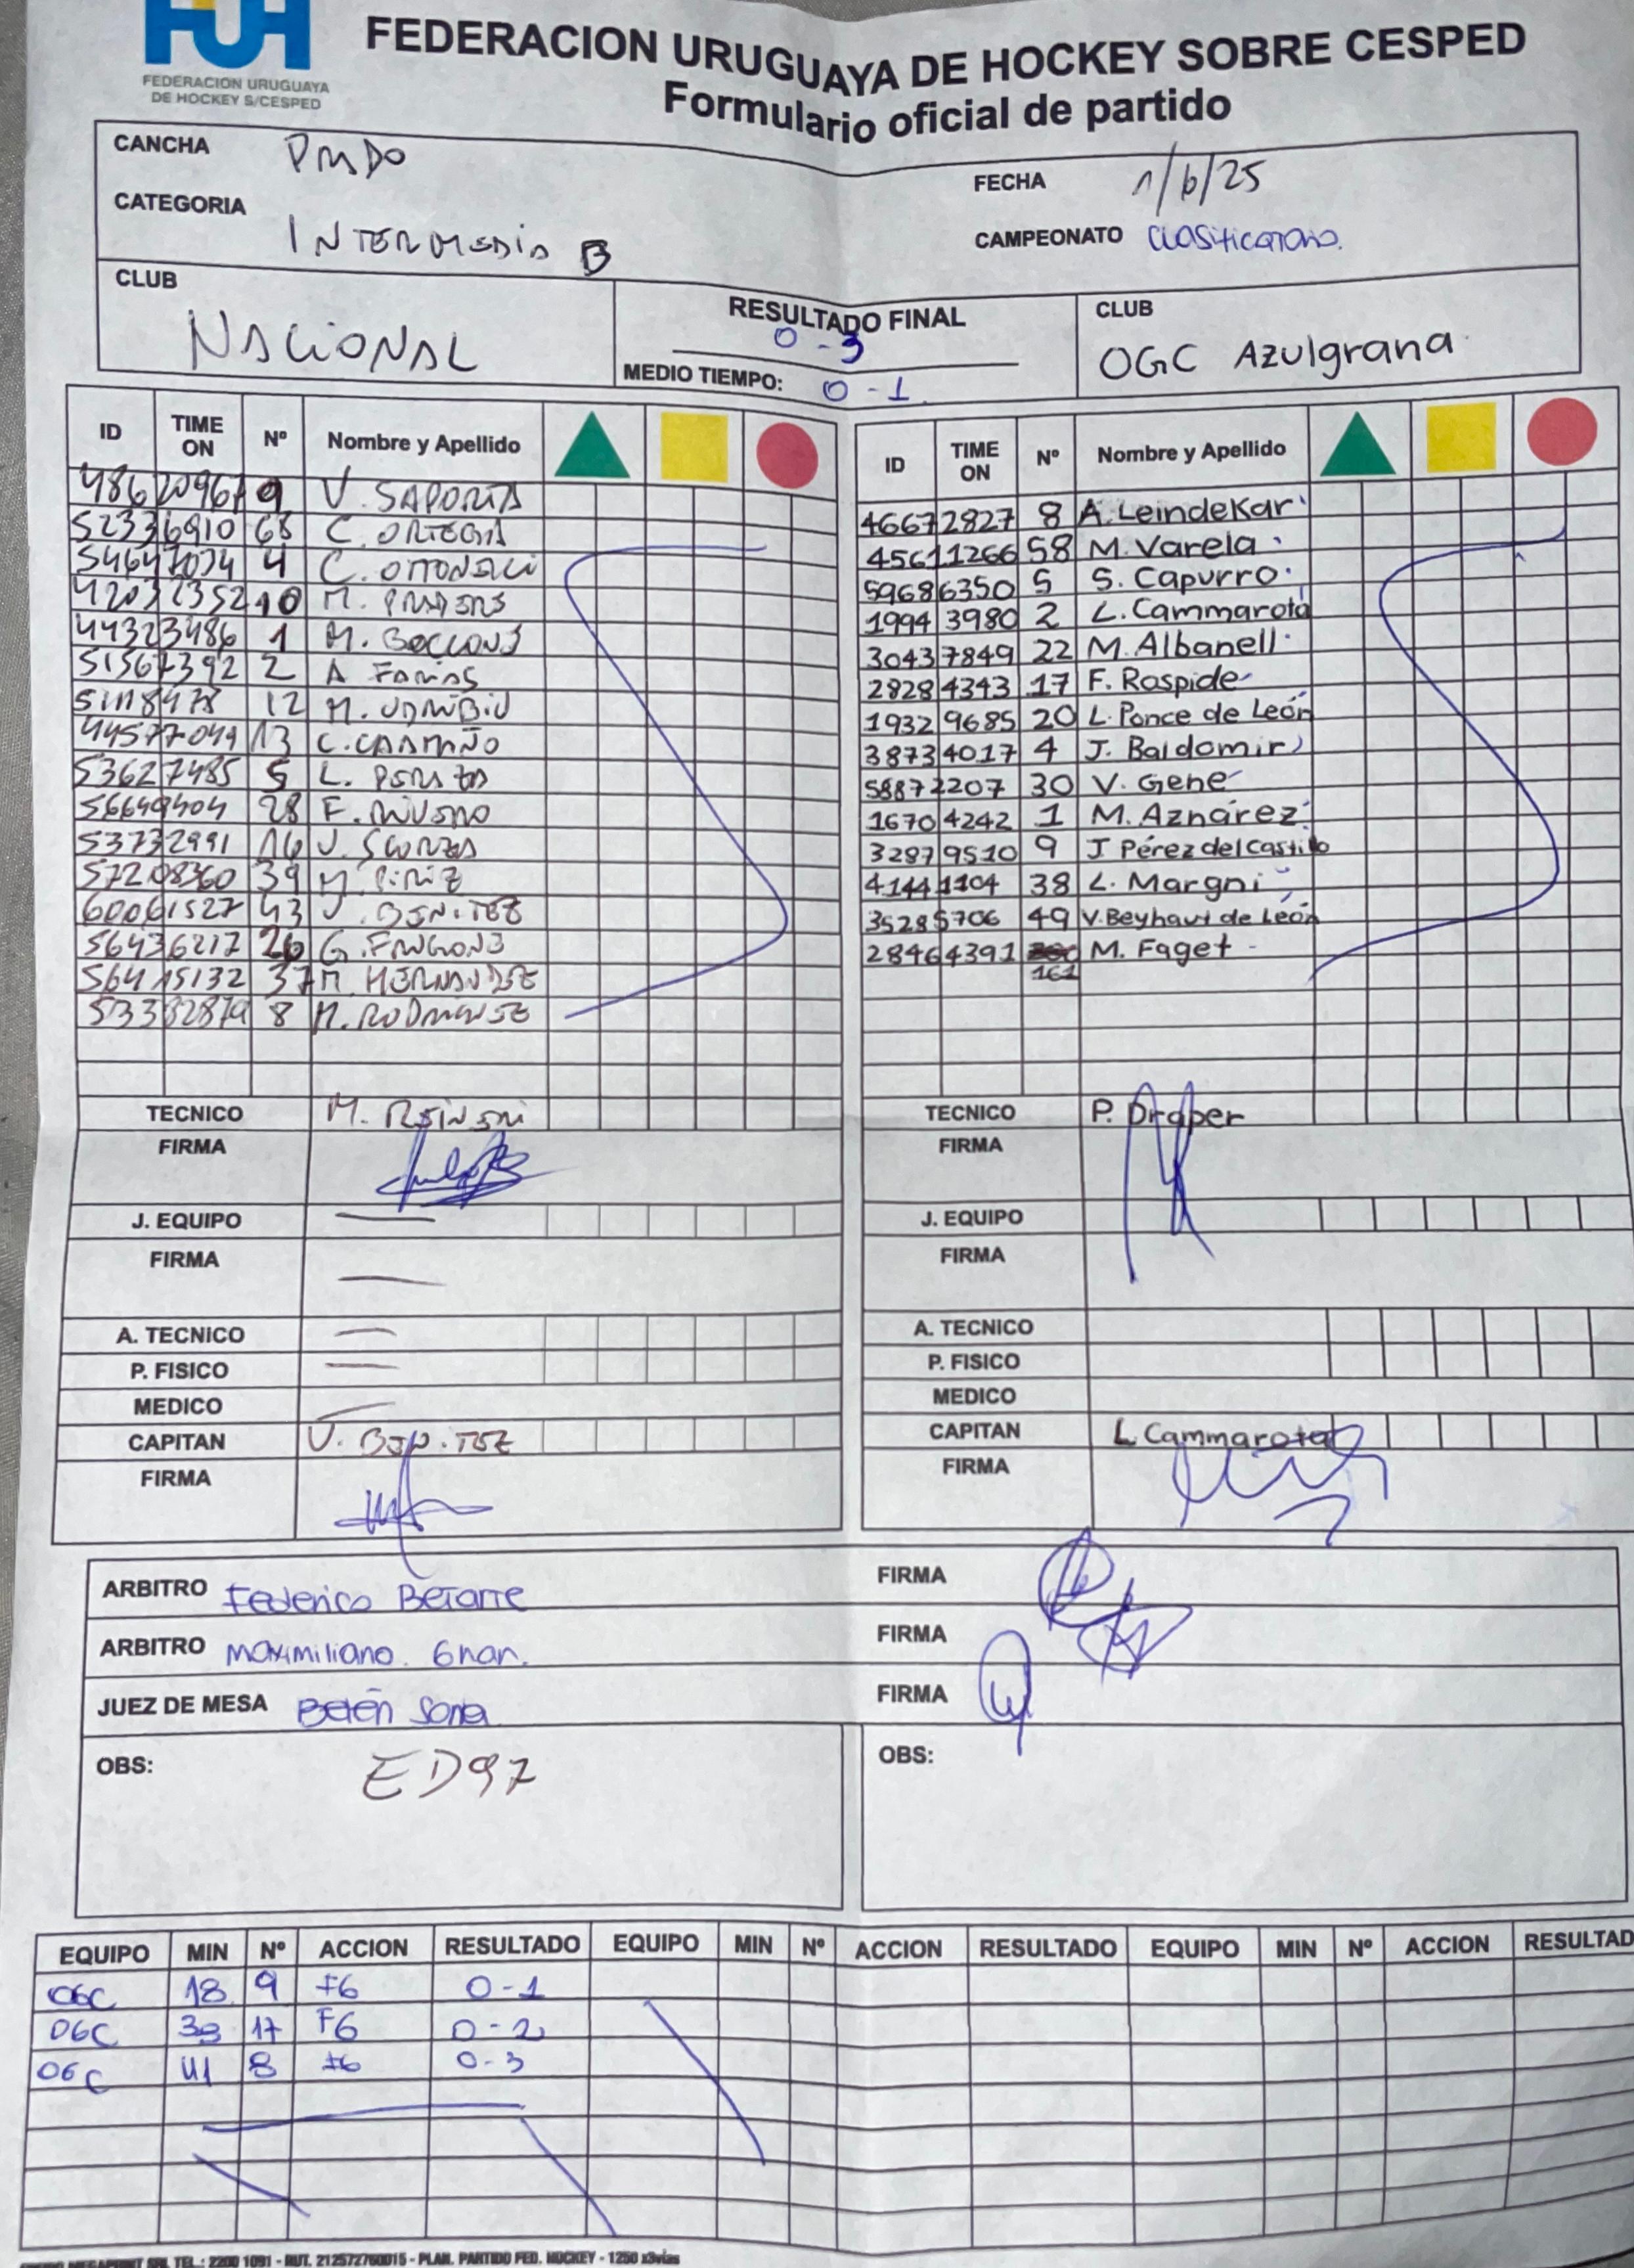 FUH
FEDERACION URUGUAYA
DE HOCKEY S/CESPED
FEDERACION URUGUAYA DE HOCKEY SOBRE CESPED
Formulario oficial de partido
CANCHA PRADO
FECHA 1/6/25
CATEGORIA INTERMEDIA B
CAMPEONATO Clasificatorio.
CLUB NACIONAL
RESULTADO FINAL 0-3
MEDIO TIEMPO: 0-1
CLUB OGC Azulgrana
ID TIME ON Nº Nombre y Apellido
9 V. SAPORITA
52336910 68 C. ORTEGA
4 C. OTTONELLI
10 M.
44323486 1 M.
51567392 2 A FARIAS
12 M. UDAÑBIU
13 C. CAAMAÑO
53627485 5 L. PERATZA
56649404 28 F. RIVERO
53732991 16 V. SCORZA
57208360 39 M. PIRIZ
60061527 43 V. BENITEZ
56436217 26 G. FRUGONE
56415132 37 M. HERNANDEZ
53382879 8 M. RODRIGUEZ
TECNICO M.
FIRMA
J. EQUIPO
FIRMA
A. TECNICO
P. FISICO
MEDICO
CAPITAN V. BENITEZ
FIRMA
ID TIME ON Nº Nombre y Apellido
46672827 8 A. Leindekar
45611266 58 M. Varela
59686350 5 S. Capurro
19943980 2 L. Cammarota
30437849 22 M. Albanell
28284343 17 F. Raspide
19329685 20 L. Ponce de León
38734017 4 J. Baldomir
58872207 30 V. Gene
16704242 1 M. Aznárez
32879510 9 J Pérez del Castillo
41441104 38 L. Margni
35285706 49 V. Beyhaut de León
28464391 161 M. Faget
TECNICO P. Draper
FIRMA
J. EQUIPO
FIRMA
A. TECNICO
P. FISICO
MEDICO
CAPITAN L Cammarota
FIRMA
ARBITRO Federico Betarte FIRMA
ARBITRO Maximiliano. Gnar. FIRMA
JUEZ DE MESA Belén Soria FIRMA
OBS: ED97
OBS:
EQUIPO MIN Nº ACCION RESULTADO EQUIPO MIN Nº ACCION RESULTADO EQUIPO MIN Nº ACCION RESULTAD
OGC 18 9 FG 0-1
OGC 17 FG 0-2
OGC 41 8 FG 0-3
TEL.: 2200 1091 - RUT. 212572760015 - PLAN. PARTIDO FED. HOCKEY - 1250 x3vias